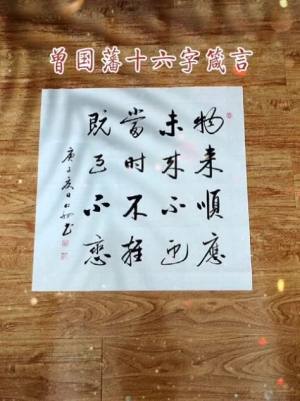 曾国藩十六字箴言
物来順應
未来不迎
當时不雜
既过不戀
庚子夏日